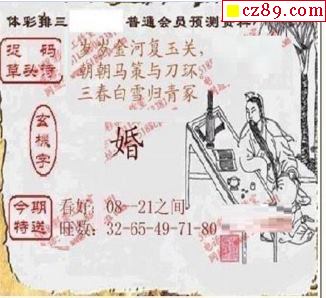 cz89.com
体彩排三 普通会员预测资料
捉码
草头诗
岁岁金河复玉关,
朝朝马策与刀环,
三春白雪归青冢
玄機字
婚
今期
特送
看好: 08--21之间
旺数: 32-65-49-71-80